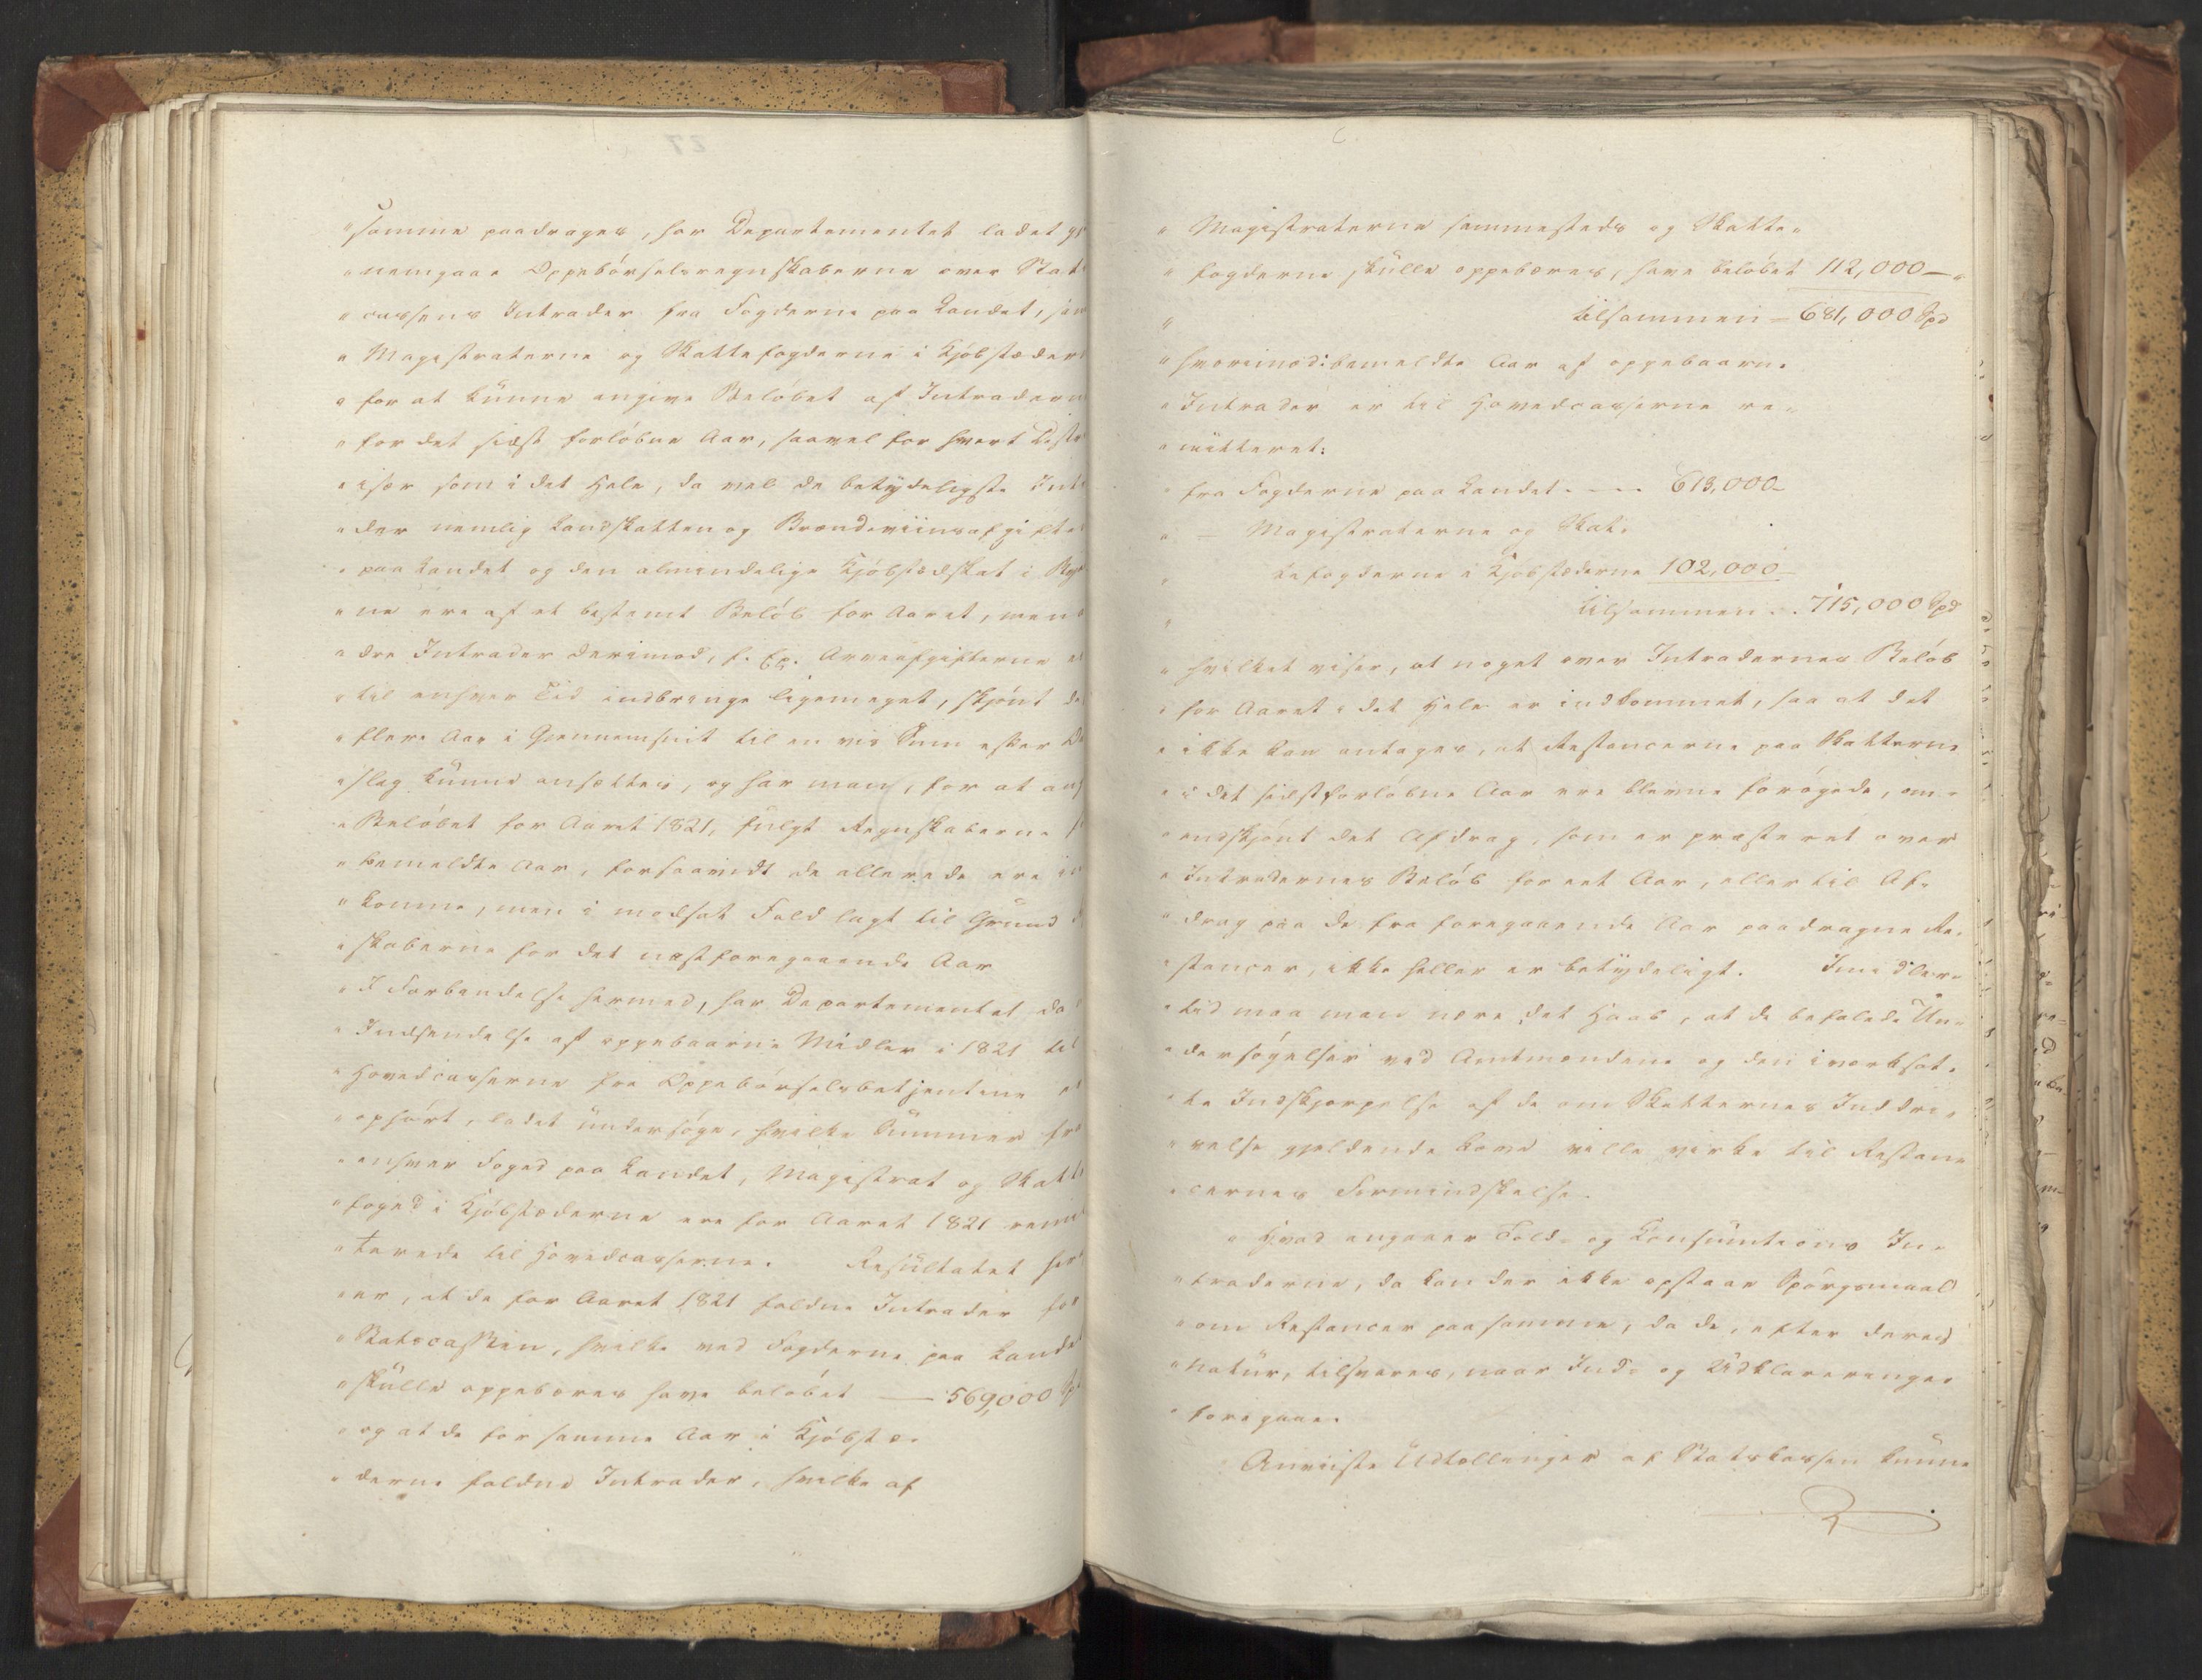 "samme paadrages, har Departementet ladet gi
"nemgaae Oppebørselsregnskaberne over Stats
"cassens Intrader fra Fogderne paa Landet, sam
"Magistraterne og Skattefogderne i Kjøbstæder
"for at kunne angive Beløbet af Intraderne
"for det sidst forløbne Aar, saavel for hvert Distr
"især som i det Hele, da vel de betydeligste Intr
"der nemlig Landskatten og Brændeviinsafgifte
"paa Landet og den almindelige Kjøbstædskat i
"ne ere af et bestemt Beløb for Aaret, men
"dre Intrader derimod, f. Ex. Arveafgifterne ei
"til enhver Tid indbringe ligemeget, skjønt de
"flere Aar i Giennemsnit til en vis Sum efter
"slag kunne ansættes, og har man, for at ang
"Beløbet for Aaret 1821, fulgt Regnskaberne f
"bemeldte Aar, forsaavidt de allerede ere in
"komne, men i modsat Fald lagt til Grund
"skaberne for det næstforegaaende Aar
"I Forbindelse hermed, har Departementet, da
"Indsendelse af oppebaarne Midler i 1821 til
"Hovedcasserne fra Oppebørselsbetjentene er
"ophørt, ladet undersøge, hvilke Summer fra
"enhver Foged paa Landet, Magistrat og Skatte
"foged i Kjøbstæderne ere for Aaret 1821 remit
"terede til Hovedcasserne. Resultatet her
"er, at de for Aaret 1821 faldne Intrader for
"Statscassen, hvilke ved Fogderne paa Landet
"skulle oppebæres have beløbet — 569,000 Sp
"og at de for samme Aar i Kjøbstæ-
"derne faldne Intrader, hvilke af
"Magistraterne sammesteds og Skatte-
"fogderne skulle oppebæres, have beløbet 112,000 —
" tilsammen = 681,000 Spd
"hvorimod i bemeldte Aar af oppebaarne
"Intrader er til Hovedcasserne re-
"mitteret:
"fra Fogderne paa Landet - - - 613,000 -
" — Magistraterne og Skat-
" tefogderne i Kjøbstæderne 102,000
" tilsammen . . 715,000 Spd
"hvilket viser, at noget over Intradernes Beløb
"for Aaret i det Hele er indkommet, saa at det
"ikke kan antages, at Restancerne paa Skatterne
"i det sidstforløbne Aar ere blevne forøgede, om-
"endskjønt det Afdrag, som er præsteret over
"Intradernes Beløb for eet Aar, eller til Af-
"drag paa de fra foregaaende Aar paadragne Re-
"stancer, ikke heller er betydeligt. Imidler-
"tid maa man nære det Haab, at de befalede Un-
"dersøgelser ved Amtmændene og den iværksat-
"te Indskjærpelse af de om Skatternes Inddri-
"velse gjeldende Love ville virke til Restan-
"cernes Formindskelse.
"Hvad angaaer Told- og Consumtions In-
"traderne, da kan der ikke opstaae Spørgsmaal
"om Restancer paa samme, da de, efter deres
"Natur, tilsvares, naar Ind- og Udklareringer
"foregaae.
Anviiste Udtællinger af Statskassen kunne